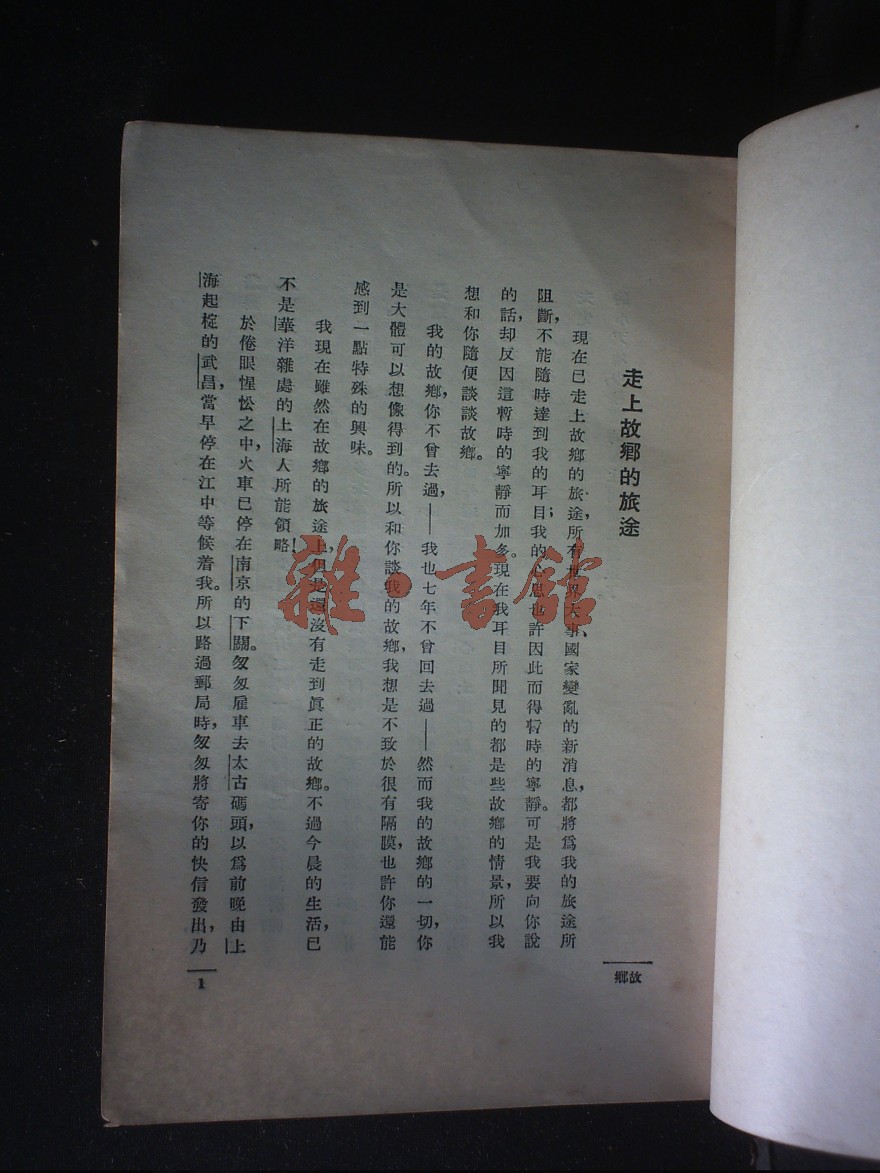 走上故鄉的旅途
現在已走上故鄉的旅途，所有世界大事、國家變亂的新消息，都將爲我的旅途所
阻斷，不能隨時達到我的耳目；我的心思也許因此而得暫時的寧靜。可是我要向你說
的話，却反因這暫時的寧靜而加多。現在我耳目所聞見的都是些故鄉的情景，所以我
想和你隨便談談故鄉。
我的故鄉，你不曾去過，——我也七年不曾回去過——然而我的故鄉的一切，你
是大體可以想像得到的。所以和你談我的故鄉，我想是不致於很有隔膜，也許你還能
感到一點特殊的興味。
我現在雖然在故鄉的旅途上，但是還沒有走到眞正的故鄉。不過今晨的生活，已
不是華洋雜處的上海人所能領略！
於倦眼惺忪之中，火車已停在南京的下關。匆匆雇車去太古碼頭，以爲前晚由上
海起椗的武昌，當早停在江中等候着我。所以路過郵局時，匆匆將寄你的快信發出，乃
故鄉
1
雜·書館